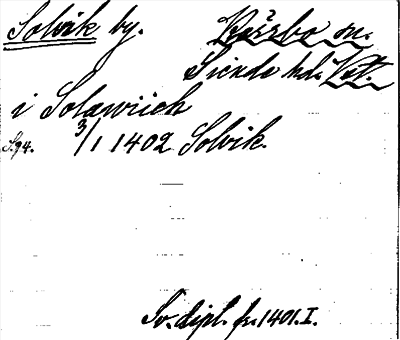 Solvik by. Kärrbo sn.
Siende hd. Vstm.
i Solawiich
S. 94. 3/1 1402 Solvik.
Sv. dipl. fr. 1401. I.